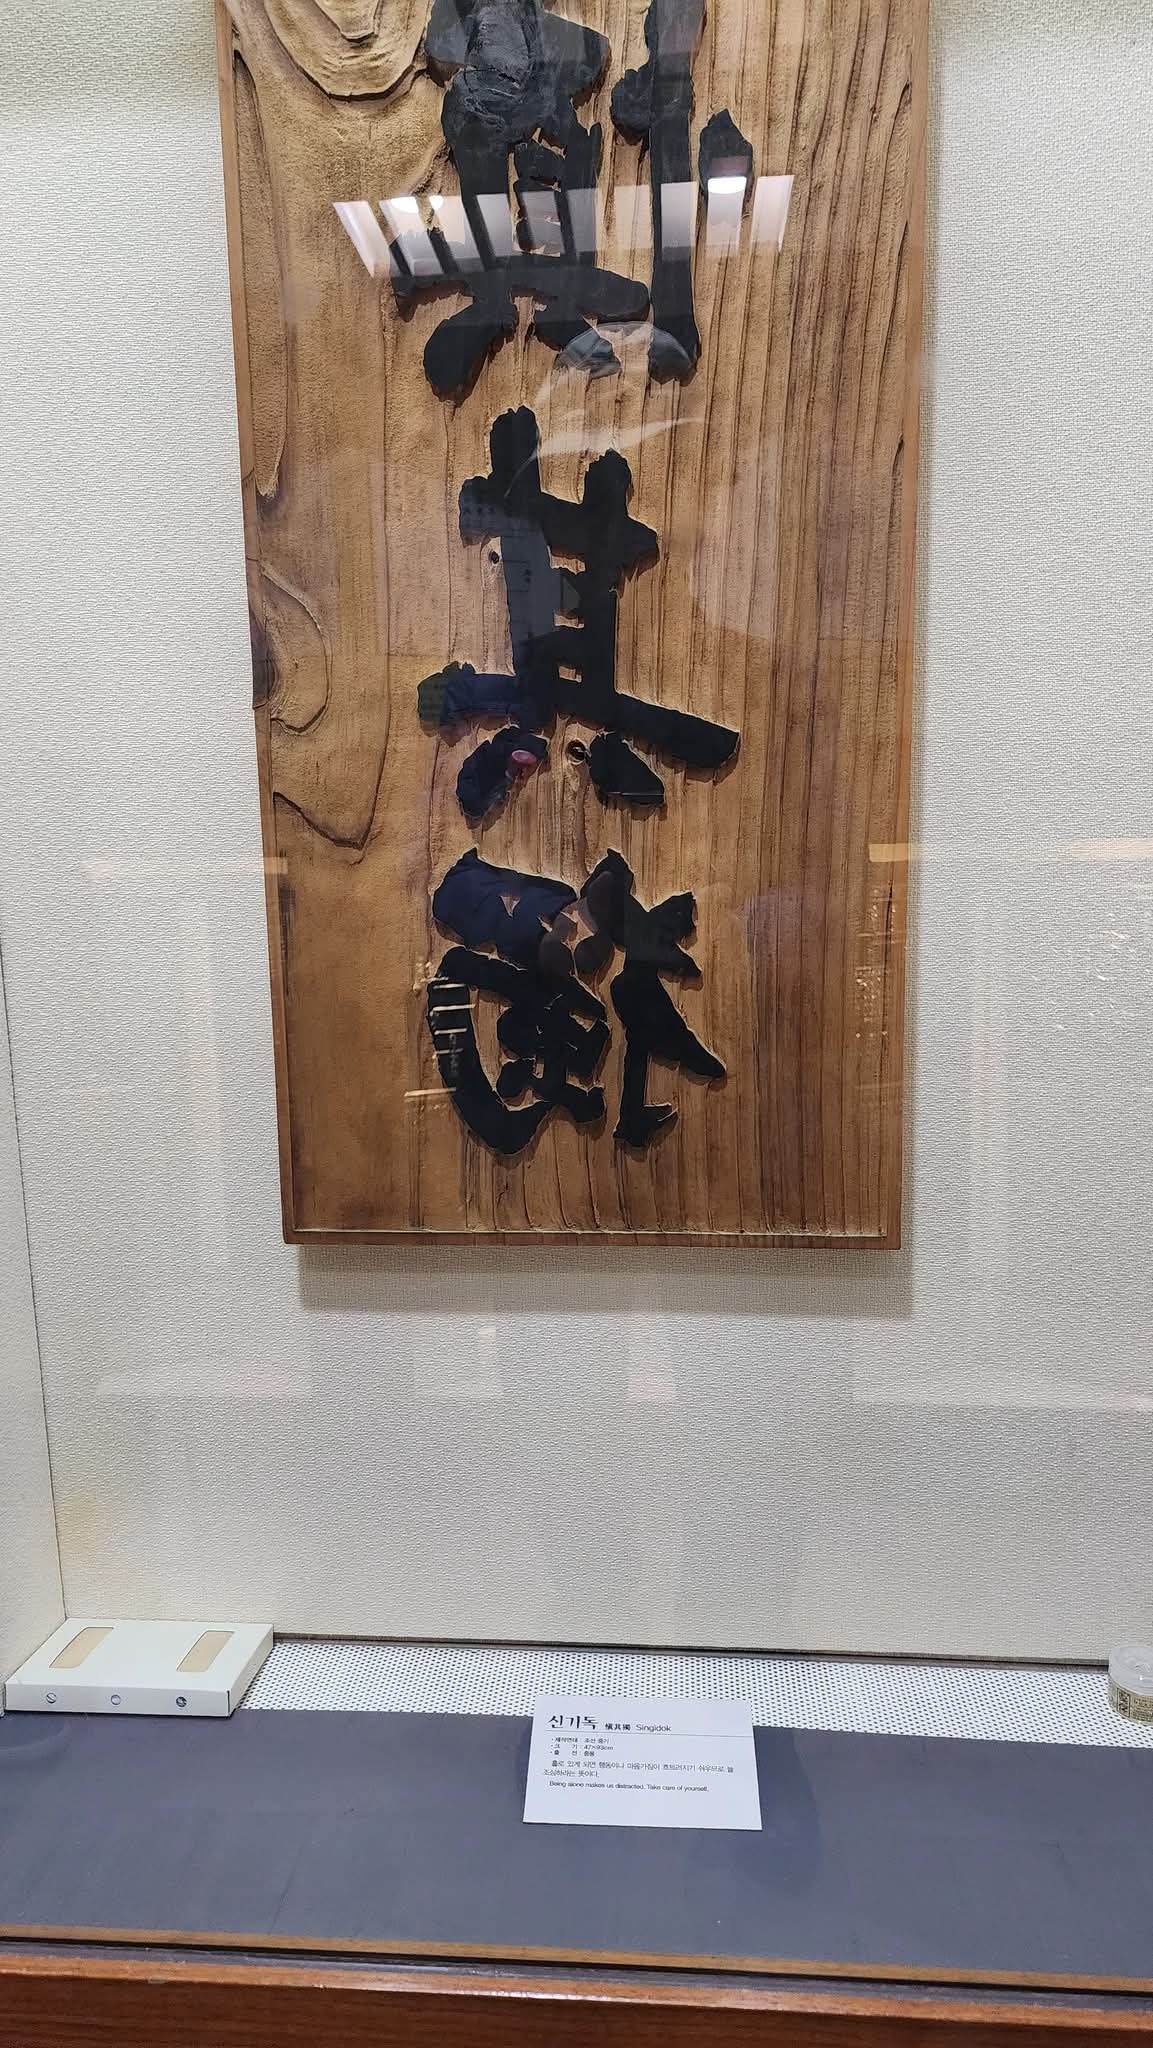 愼
其
獨
신기독 愼其獨 Singidok
• 제작연대 : 조선 중기
• 크 기 : 47×93cm
• 출 전 : 중용
홀로 있게 되면 행동이나 마음가짐이 흐트러지기 쉬우므로 늘
조심하라는 뜻이다.
Being alone makes us distracted. Take care of yourself.